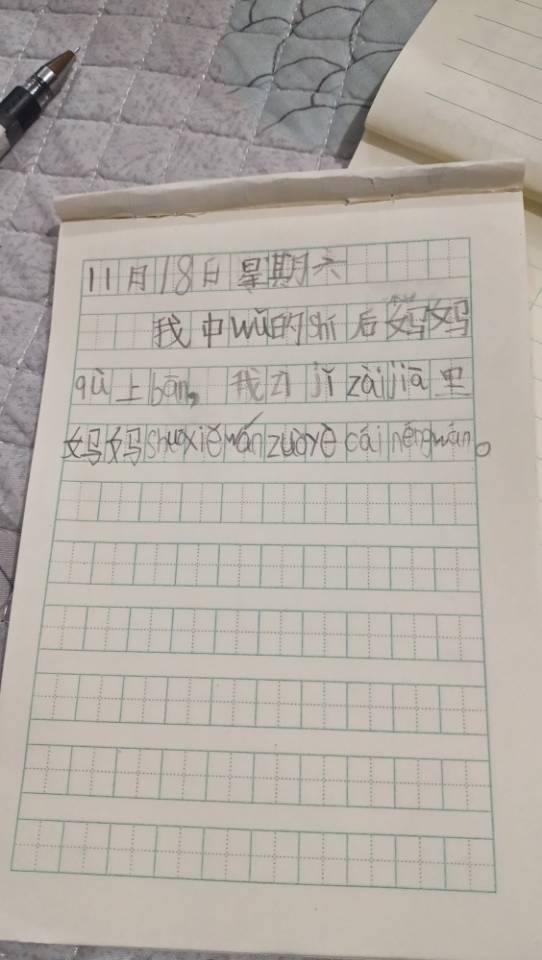 11月18日星期六
我中wǔ的shí后妈妈
qù上bān,我zì jǐ zài jiā里
妈妈shuō xiě wán zuò yè cái néng wán。